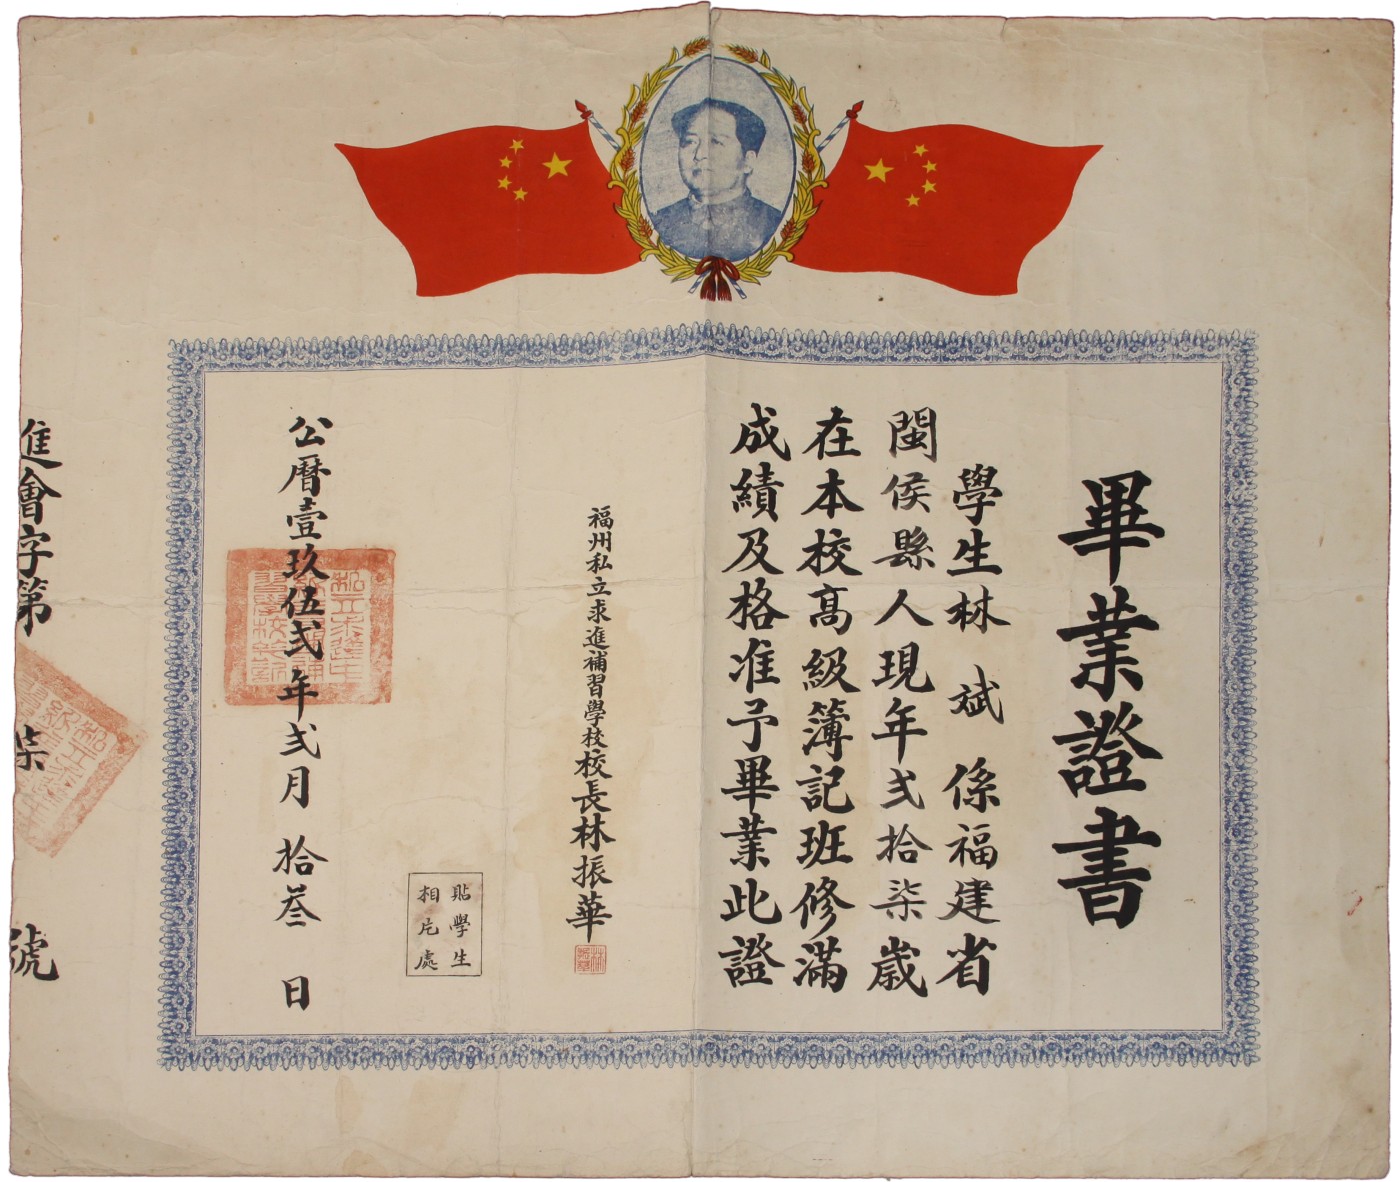 畢業證書
學生林斌係福建省
閩侯縣人現年弍拾柒歲
在本校高級簿記班修滿
成績及格准予畢業此證
福州私立求進補習學校校長林振華
貼學生
相片處
公曆壹玖伍弍年弍月拾叁日
進會字第柒號